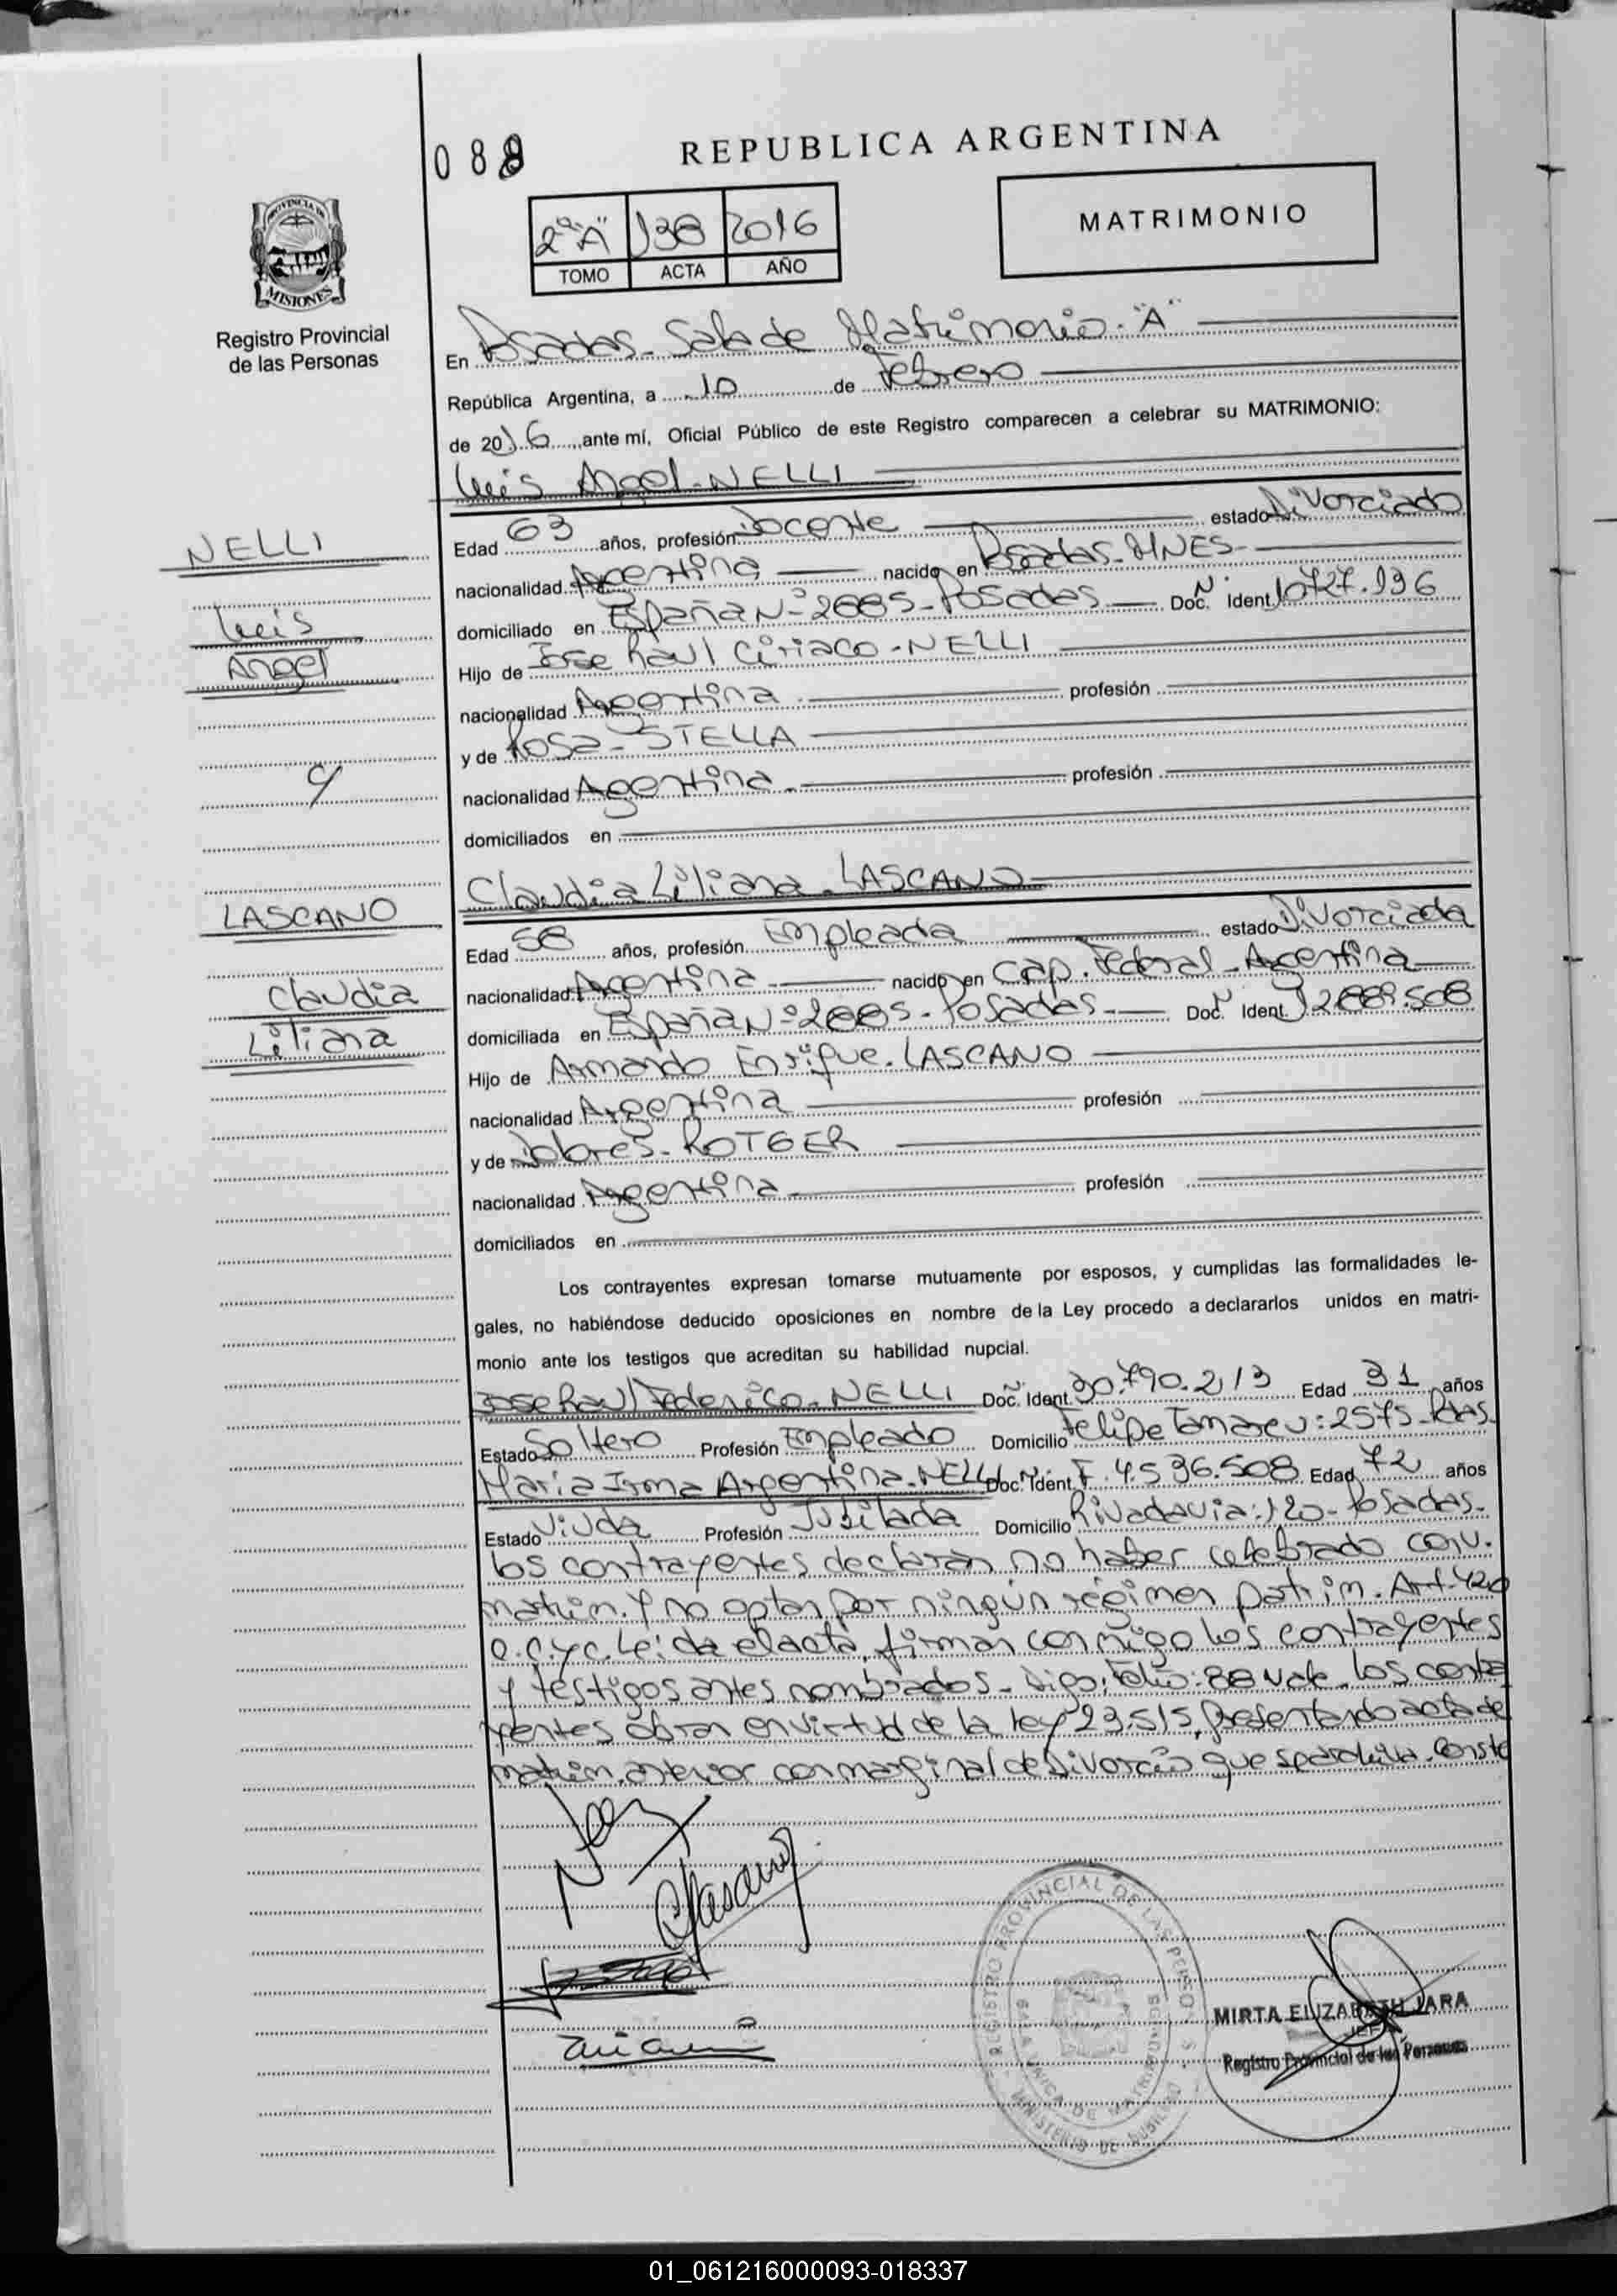 088
REPUBLICA ARGENTINA
2º"A" 138 2016
TOMO ACTA AÑO
MATRIMONIO
PROVINCIA DE
MISIONES
Registro Provincial
de las Personas
En Posadas - Sala de Matrimonio - "A"
República Argentina, a 10 de Febrero
de 2016 ante mí, Oficial Público de este Registro comparecen a celebrar su MATRIMONIO:
Luis Angel - NELLI
NELLI
Luis
Angel
c/
Edad 63 años, profesión Docente estado Divorciado
nacionalidad Argentina nacido en Posadas - MNES -
domiciliado en España Nº 2885 - Posadas Doc. Nº Ident. 10727.196
Hijo de Jose Raul Ciriaco - NELLI
nacionalidad Argentina profesión
y de Rosa - STELLA
nacionalidad Argentina profesión
domiciliados en
Claudia Liliana - LASCANO
LASCANO
Claudia
Liliana
Edad 58 años, profesión Empleada estado Divorciada
nacionalidad Argentina nacido en Cap. Federal - Argentina
domiciliada en España Nº 2885 - Posadas Doc. Nº Ident. 12889.508
Hijo de Armando Enrique - LASCANO
nacionalidad Argentina profesión
y de Dolores - ROTGER
nacionalidad Argentina profesión
domiciliados en
Los contrayentes expresan tomarse mutuamente por esposos, y cumplidas las formalidades le-
gales, no habiéndose deducido oposiciones en nombre de la Ley procedo a declararlos unidos en matri-
monio ante los testigos que acreditan su habilidad nupcial.
Jose Raul Federico - NELLI Doc. Ident. 30.790.213 Edad 31 años
Estado Soltero Profesión Empleado Domicilio Felipe Tamareu: 2575 - Pdas.
Maria Irma Argentina - NELLI Doc. Ident. F. 4.596.508 Edad 72 años
Estado Viuda Profesión Jubilada Domicilio Rivadavia: 120 - Posadas.
los contrayentes declaran no haber celebrado conv.
matrim. y no optan por ningún régimen patrim. Art. 420
C.C.yC. Leida el acta, firman conmigo los contrayentes
y testigos antes nombrados - Digo: Folio: 88 Vale. los contra
yentes obran en virtud de la ley 23.515, Presentando acta de
matrim. anterior con marginal de Divorcio que se archiva. Conste
REGISTRO PROVINCIAL DE LAS PERSONAS
MINISTERIO DE
MIRTA ELIZABETH JARA
JEFA
Registro Provincial de las Personas
01_061216000093-018337